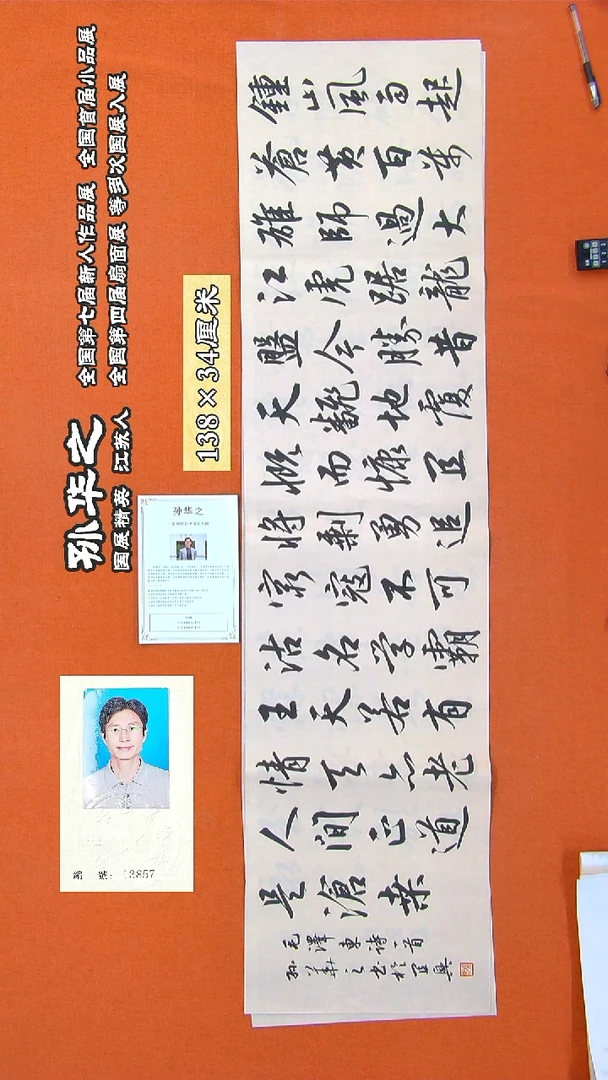 孙华之
国展精英 江苏人
全国第七届新人作品展 全国首届小品展
全国第四届扇面展 等多次国展入展
138×34厘米
孙华之
鍾山風雨起
蒼黄百萬
雄師過大
江虎踞龍
盤今勝昔
天翻地覆
慨而慷宜
將剩勇追
窮寇不可
沽名学霸
王天若有
情天亦老
人間正道
是滄桑
毛澤東詩一首
孙華之书於宜興